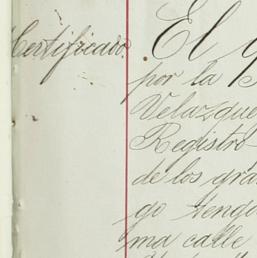 Certificado.
El
por la
Velazque
Registro
de los gra
go tengo
ma calle